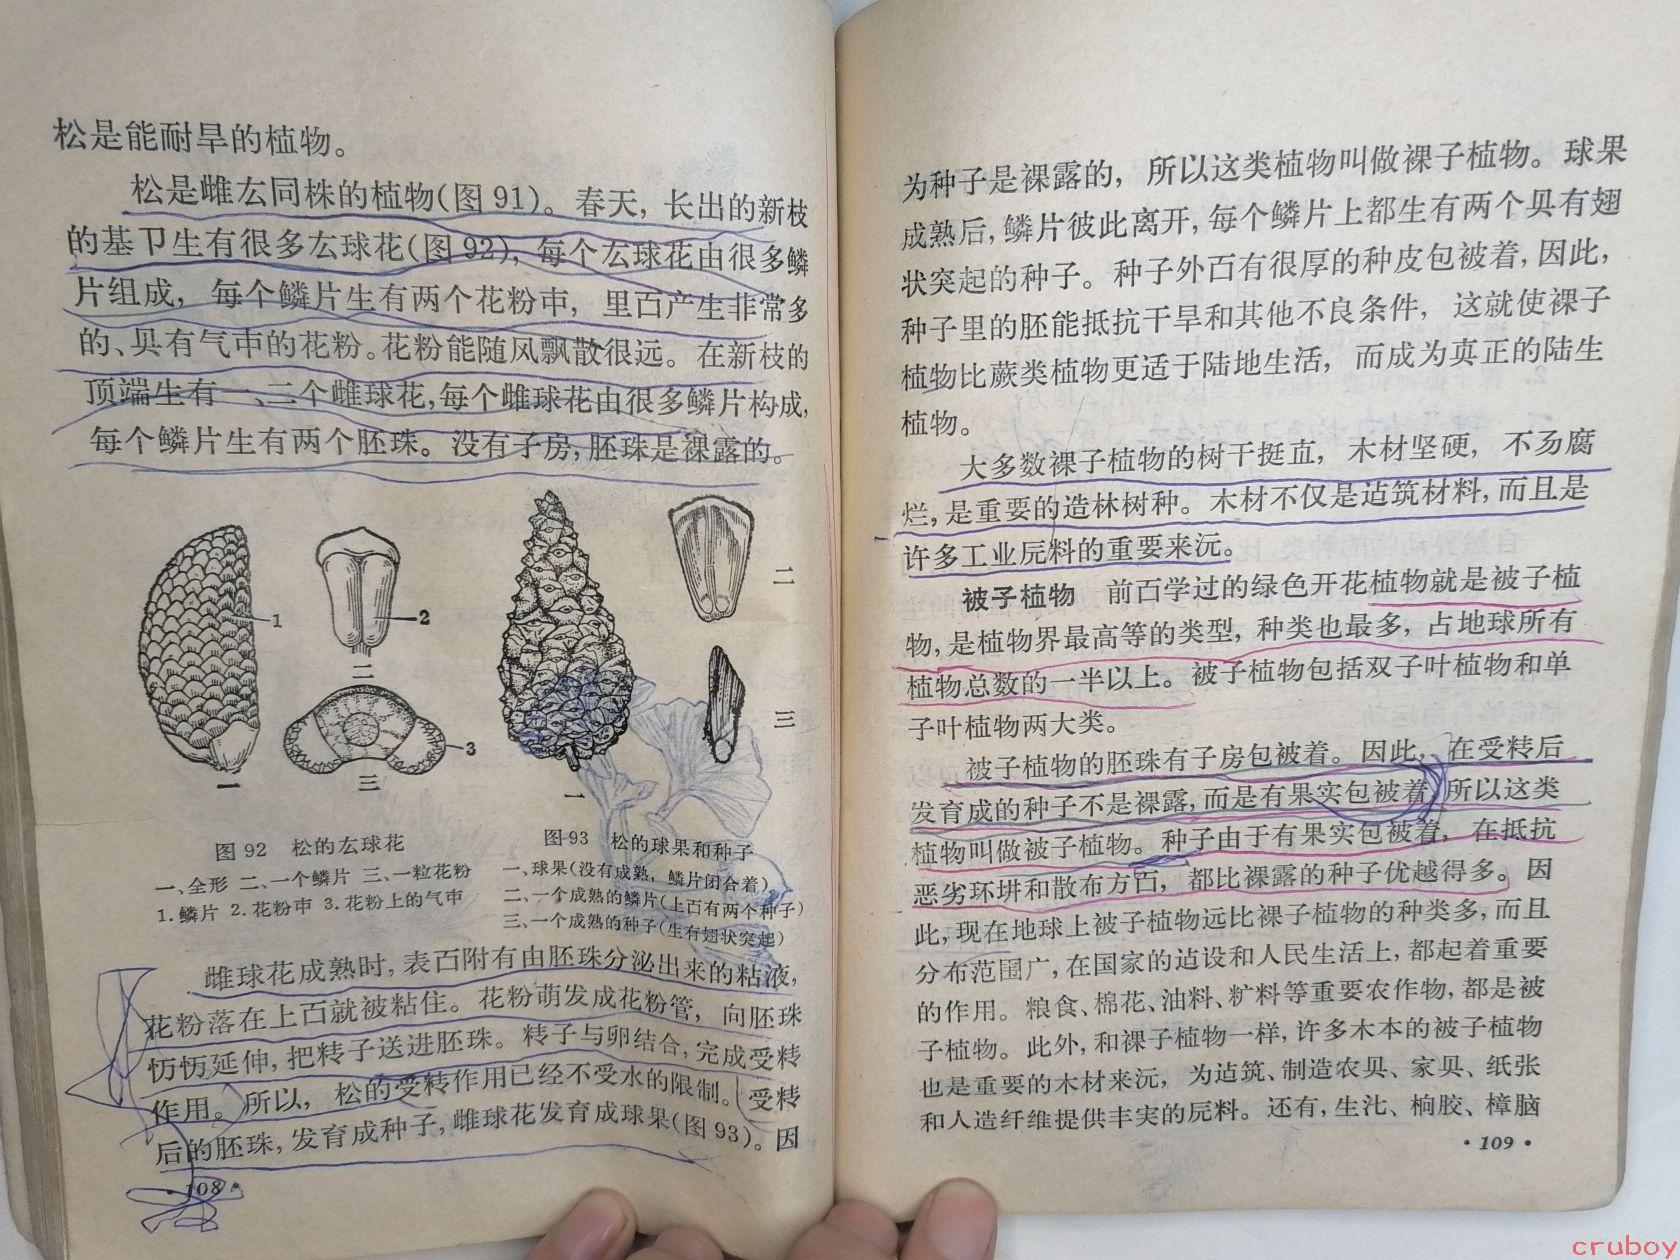 松是能耐旱的植物。
松是雌厷同株的植物(图91)。春天，长出的新枝
的基卩生有很多厷球花(图92)，每个厷球花由很多鳞
片组成，每个鳞片生有两个花粉囊，里面产生非常多
的、具有气囊的花粉。花粉能随风飘散很远。在新枝的
顶端生有一、二个雌球花，每个雌球花由很多鳞片构成，
每个鳞片生有两个胚珠。没有子房，胚珠是裸露的。
1
2
3
一
二
三
一
二
三
图92 松的厷球花
一、全形 二、一个鳞片 三、一粒花粉
1.鳞片 2.花粉囊 3.花粉上的气囊
图93 松的球果和种子
一、球果(没有成熟，鳞片闭合着)
二、一个成熟的鳞片(上面有两个种子)
三、一个成熟的种子(生有翅状突起)
雌球花成熟时，表面附有由胚珠分泌出来的粘液，
花粉落在上面就被粘住。花粉萌发成花粉管，向胚珠
慢慢延伸，把精子送进胚珠。精子与卵结合，完成受精
作用。所以，松的受精作用已经不受水的限制。受精
后的胚珠，发育成种子，雌球花发育成球果(图93)。因
·108·
为种子是裸露的，所以这类植物叫做裸子植物。球果
成熟后，鳞片彼此离开，每个鳞片上都生有两个具有翅
状突起的种子。种子外面有很厚的种皮包被着，因此，
种子里的胚能抵抗干旱和其他不良条件，这就使裸子
植物比蕨类植物更适于陆地生活，而成为真正的陆生
植物。
大多数裸子植物的树干挺直，木材坚硬，不易腐
烂，是重要的造林树种。木材不仅是迠筑材料，而且是
许多工业原料的重要来沅。
被子植物 前面学过的绿色开花植物就是被子植
物，是植物界最高等的类型，种类也最多，占地球所有
植物总数的一半以上。被子植物包括双子叶植物和单
子叶植物两大类。
被子植物的胚珠有子房包被着。因此，在受精后
发育成的种子不是裸露，而是有果实包被着，所以这类
植物叫做被子植物。种子由于有果实包被着，在抵抗
恶劣环境和散布方面，都比裸露的种子优越得多。因
此，现在地球上被子植物远比裸子植物的种类多，而且
分布范围广，在国家的迠设和人民生活上，都起着重要
的作用。粮食、棉花、油料、纩料等重要农作物，都是被
子植物。此外，和裸子植物一样，许多木本的被子植物
也是重要的木材来沅，为迠筑、制造农具、家具、纸张
和人造纤维提供丰实的原料。还有，生漆、橡胶、樟脑
·109·
cruboy